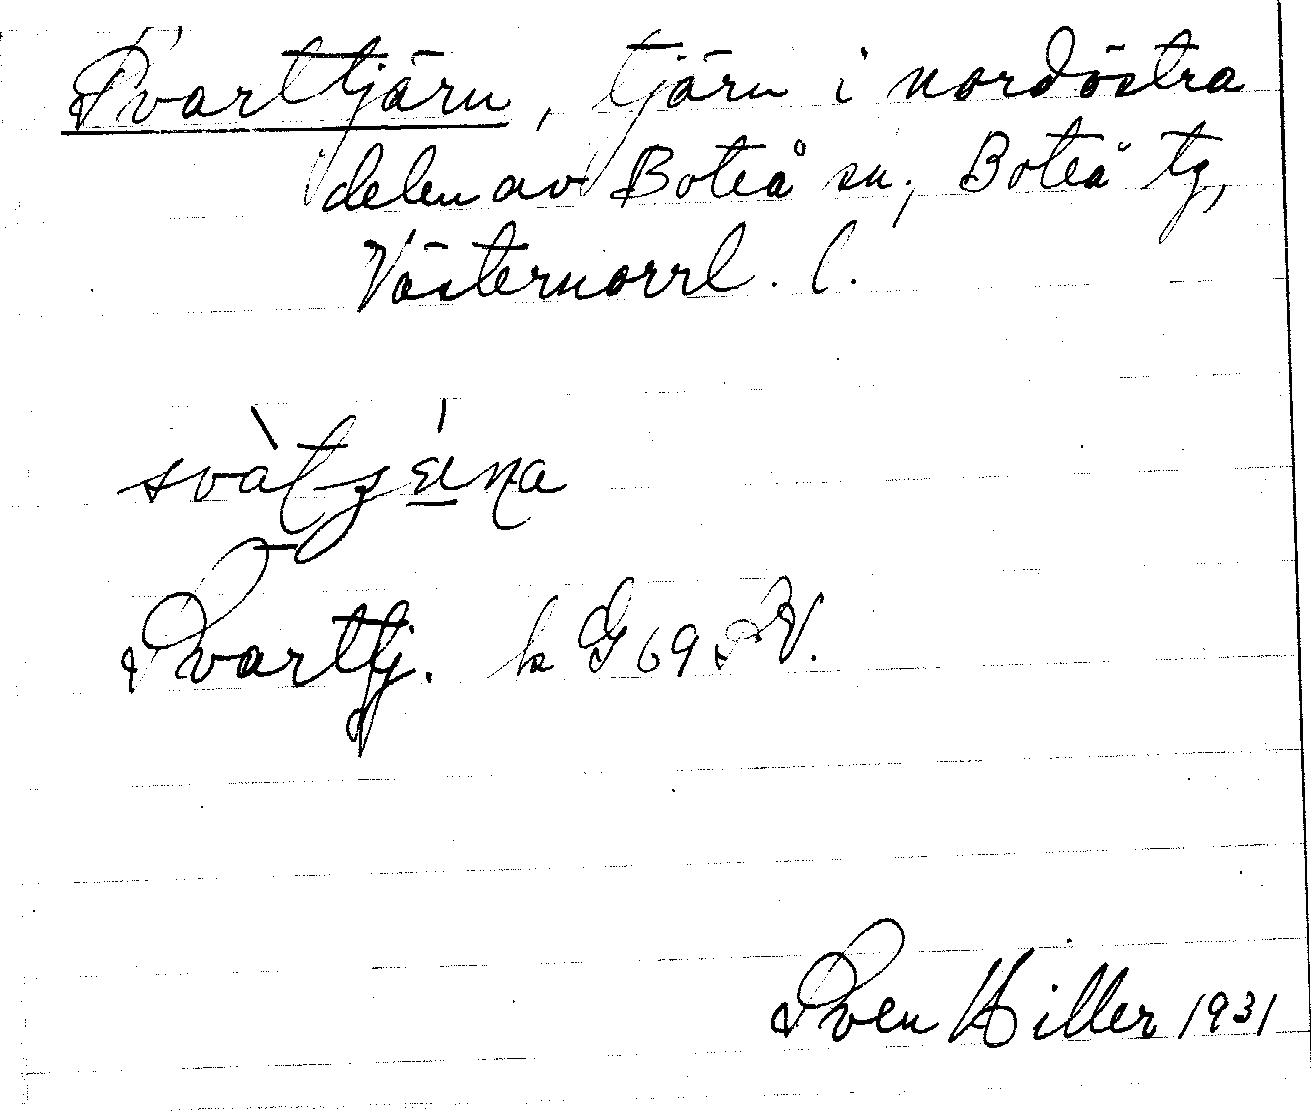 Svarttjärn, tjärn i nordöstra
delen av Boteå sn, Boteå tg,
Västernorrl. l.
Svarttj. k G 69 SV.
Sven Hiller 1931